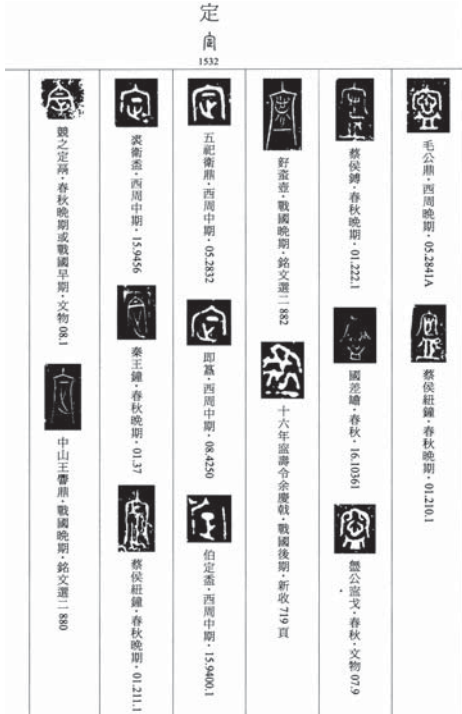 定
1532
毛公鼎·西周晚期·05.2841A
蔡侯紐鐘·春秋晚期·01.210.1
蔡侯鎛·春秋晚期·01.222.1
國差𦉜·春秋·16.10361
公寍戈·春秋·文物07.9
壺·戰國晚期·銘文選二 882
十六年寍壽令余慶戟·戰國後期·新收719頁
五祀衛鼎·西周中期·05.2832
即簋·西周中期·08.4250
伯定盉·西周中期·15.9400.1
裘衛盉·西周中期·15.9456
秦王鐘·春秋晚期·01.37
蔡侯紐鐘·春秋晚期·01.211.1
競之定鬲·春秋晚期或戰國早期·文物08.1
中山王鼎·戰國晚期·銘文選二 880